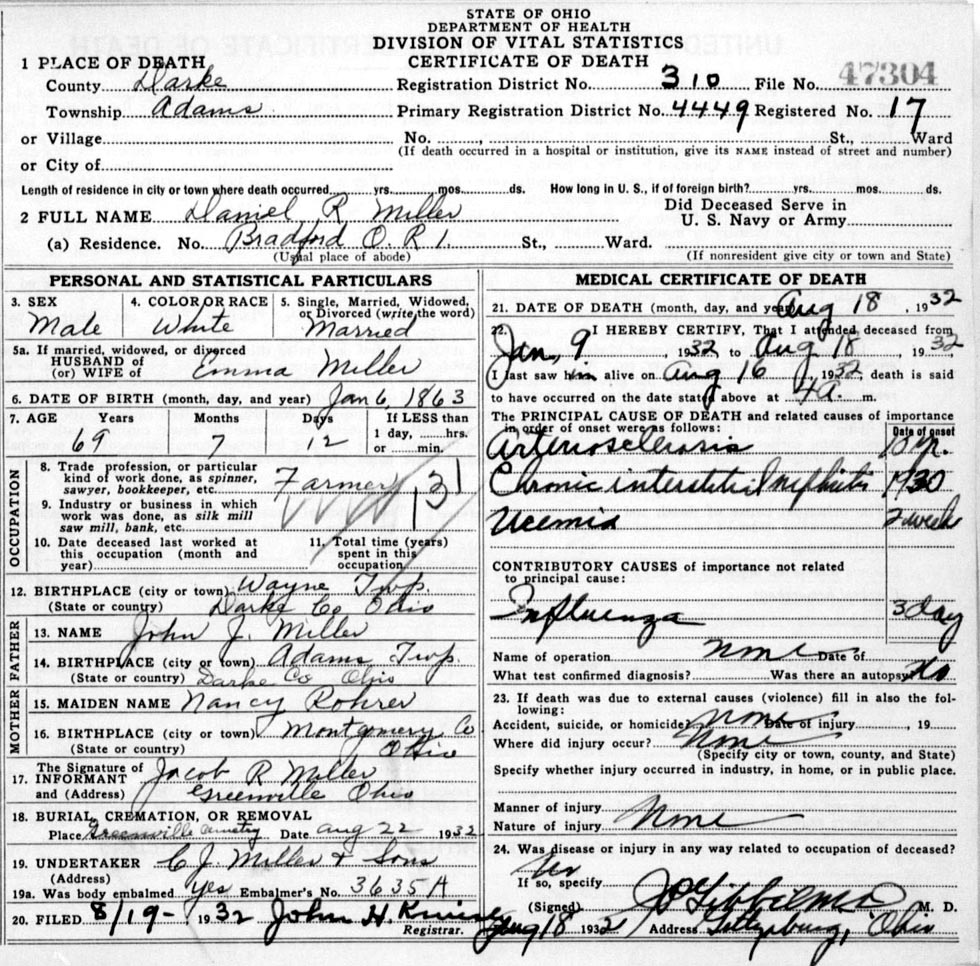 STATE OF OHIO
DEPARTMENT OF HEALTH
DIVISION OF VITAL STATISTICS
CERTIFICATE OF DEATH
1 PLACE OF DEATH
County Darke Registration District No. 310 File No. 47304
Township Adams Primary Registration District No. 4449 Registered No. 17
or Village No. St., Ward
(If death occurred in a hospital or institution, give its NAME instead of street and number)
or City of
Length of residence in city or town where death occurred yrs. mos. ds. How long in U. S., if of foreign birth? yrs. mos. ds.
2 FULL NAME Daniel R Miller Did Deceased Serve in U. S. Navy or Army
(a) Residence. No. Bradford O. R 1. St., Ward.
(Usual place of abode) (If nonresident give city or town and State)
PERSONAL AND STATISTICAL PARTICULARS
3. SEX 4. COLOR OR RACE 5. Single, Married, Widowed, or Divorced (write the word)
Male White Married
5a. If married, widowed, or divorced
HUSBAND of
(or) WIFE of Emma Miller
6. DATE OF BIRTH (month, day, and year) Jan 6, 1863
7. AGE Years Months Days If LESS than
1 day, hrs.
69 7 12 or min.
OCCUPATION
8. Trade profession, or particular
kind of work done, as spinner,
sawyer, bookkeeper, etc. Farmer
9. Industry or business in which
work was done, as silk mill
saw mill, bank, etc.
10. Date deceased last worked at
this occupation (month and
year)
11. Total time (years)
spent in this
occupation
12. BIRTHPLACE (city or town) Wayne Twp.
(State or country) Darke Co Ohio
FATHER
13. NAME John J. Miller
14. BIRTHPLACE (city or town) Adams Twp.
(State or country) Darke Co Ohio
MOTHER
15. MAIDEN NAME Nancy Rohrer
16. BIRTHPLACE (city or town) Montgomery Co
(State or country) Ohio
17. The Signature of
INFORMANT Jacob R Miller
and (Address) Greenville Ohio
18. BURIAL, CREMATION, OR REMOVAL
Place Greenville Cemetry Date Aug 22 1932
19. UNDERTAKER C J. Miller & Sons
(Address)
19a. Was body embalmed yes Embalmer's No. 3635A
20. FILED 8/19- 1932 John H.
Registrar.
MEDICAL CERTIFICATE OF DEATH
21. DATE OF DEATH (month, day, and year) Aug 18, 1932
22. I HEREBY CERTIFY, That I attended deceased from
Jan, 9, 1932 to Aug 18, 1932
I last saw him alive on Aug 16, 1932, death is said
to have occurred on the date stated above at 4 a. m.
The PRINCIPAL CAUSE OF DEATH and related causes of importance
in order of onset were as follows: Date of onset
Arteriosclerosis 10 yr.
Chronic interstitial Nephritis 1930
Uremia 2 week
CONTRIBUTORY CAUSES of importance not related
to principal cause:
Influenza 3 day
Name of operation None Date of
What test confirmed diagnosis? Was there an autopsy No
23. If death was due to external causes (violence) fill in also the fol-
lowing:
Accident, suicide, or homicide? None Date of injury 19
Where did injury occur? None
(Specify city or town, county, and State)
Specify whether injury occurred in industry, in home, or in public place.
Manner of injury
Nature of injury None
24. Was disease or injury in any way related to occupation of deceased?
No
If so, specify
(Signed) M. D.
Aug 18 1932 Address Gettysburg, Ohio